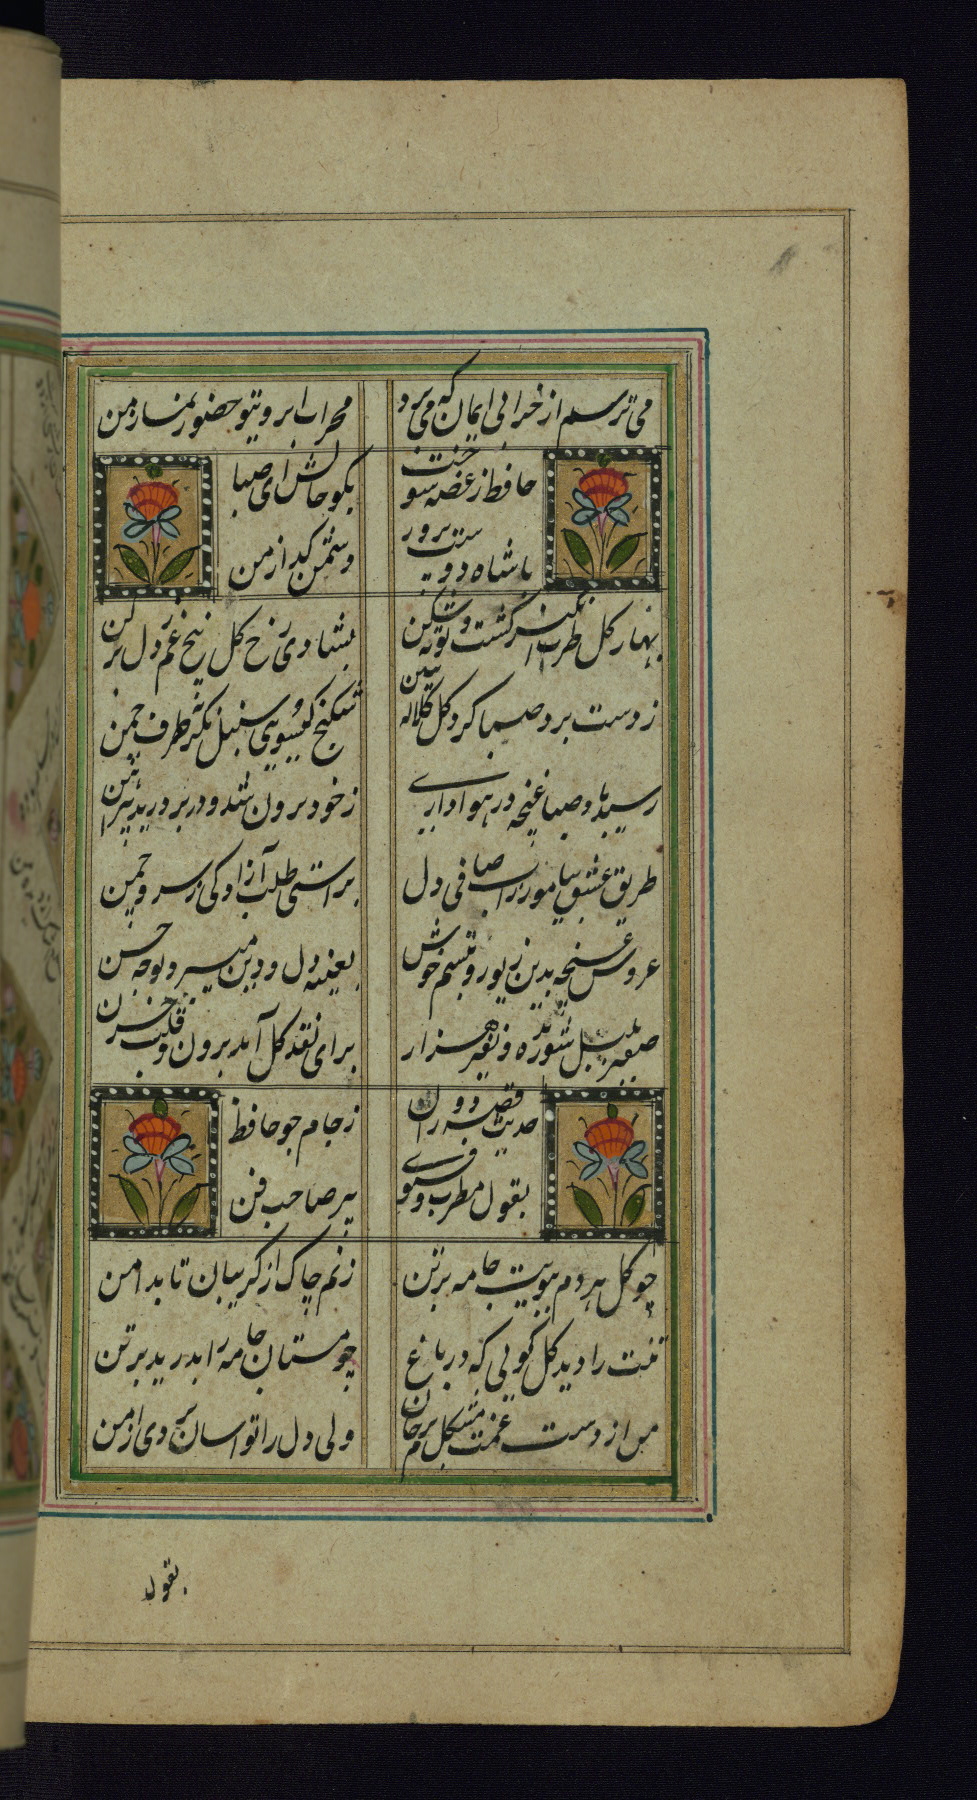 می ترسم از خرابی ایمان که می برد
محراب ابروی تو حضور نماز من
حافظ ز غصه سوخت
بگو حالش ای صبا
با شاه دوست پرور
و شمن گداز من
بهار گل طرب انگیز گشت و توبه شکن
بشادی رخ گل بیخ غم ز دل برکن
ز دست برد صبا گرد گل کلاله بین
شکنج گیسوی سنبل نگر بطرف چمن
رسید باد صبا غنچه در هواداری
ز خود برون شد و در بر درید پیراهن
طریق عشق بیاموز از صبا صافی دل
براستی طلب آزادکی ز سرو چمن
عروس غنچه بدین زیور و تبسم خوش
بعینه دل و دین میبرد بوجه حسن
صفیر بلبل شوریده و نفیر هزار
برای نقد گل آمد برون ز قلب حزن
حدیث قصه دوران
ز جام جو حافظ
بقول مطرب و فتوی
پیر صاحب فن
چو گل هر دم ببویت جامه بر تن
زنم چاک از گریبان تا بدامن
تنت را دید گل گویی که در باغ
چو مستان جامه را بدرید بر تن
من از دست غمت مشکل برم جان
ولی دل را تو آسان بردی از من
بقول